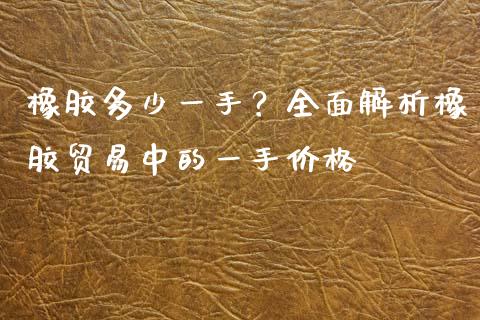 橡胶多少一手？全面解析橡
胶贸易中的一手价格